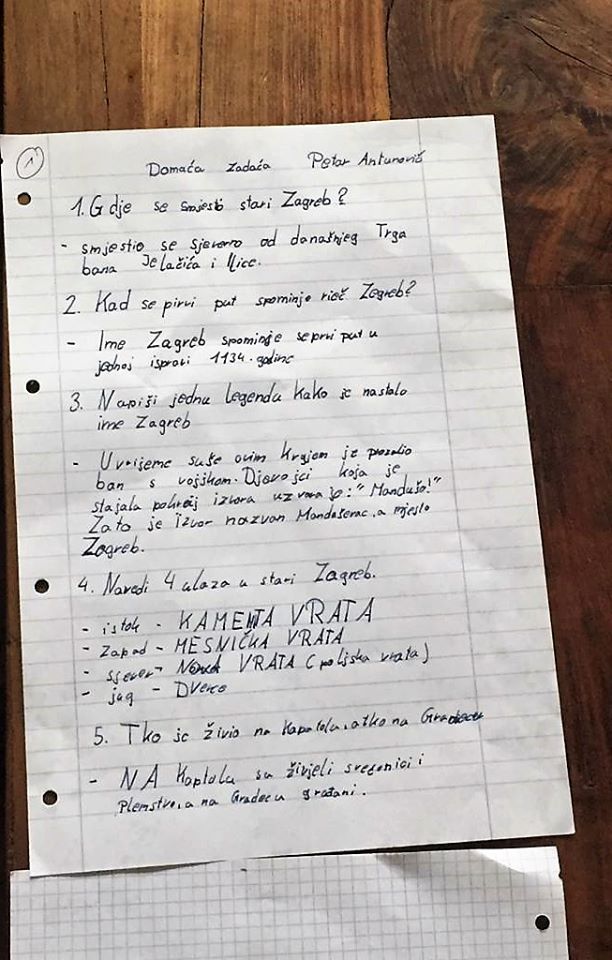 1
Domaća zadaća Petar Antunović
1. Gdje se smjesto stari Zagreb?
- smjestio se sjeverno od današnjeg Trga
bana Jelačića i Ilice.
2. Kad se pirvi put spominje rieč Zagreb?
- Ime Zagreb spominje se prvi put u
jednoj ispravi 1134. godine
3. Napiši jednu legendu kako je nastalo
ime Zagreb
- U vrijeme suše ovim krajem je prolazio
ban s vojskom. Djevojci koja je
stajala pokraj izvora uzvratio: "Mandušo!"
Zato je izvor nazvan Manduševac, a mjesto
Zagreb.
4. Navedi 4 ulaza u stari Zagreb.
- istok - KAMENTA VRATA
- zapad - MESNIČKA VRATA
- sjever - NOVA VRATA (poljska vrata)
- jug - DVerce
5. Tko je živio na Kaptolu, a tko na Gradecu
- NA Kaptolu su živjeli svećenici i
plemstvo, a na Gradecu građani.